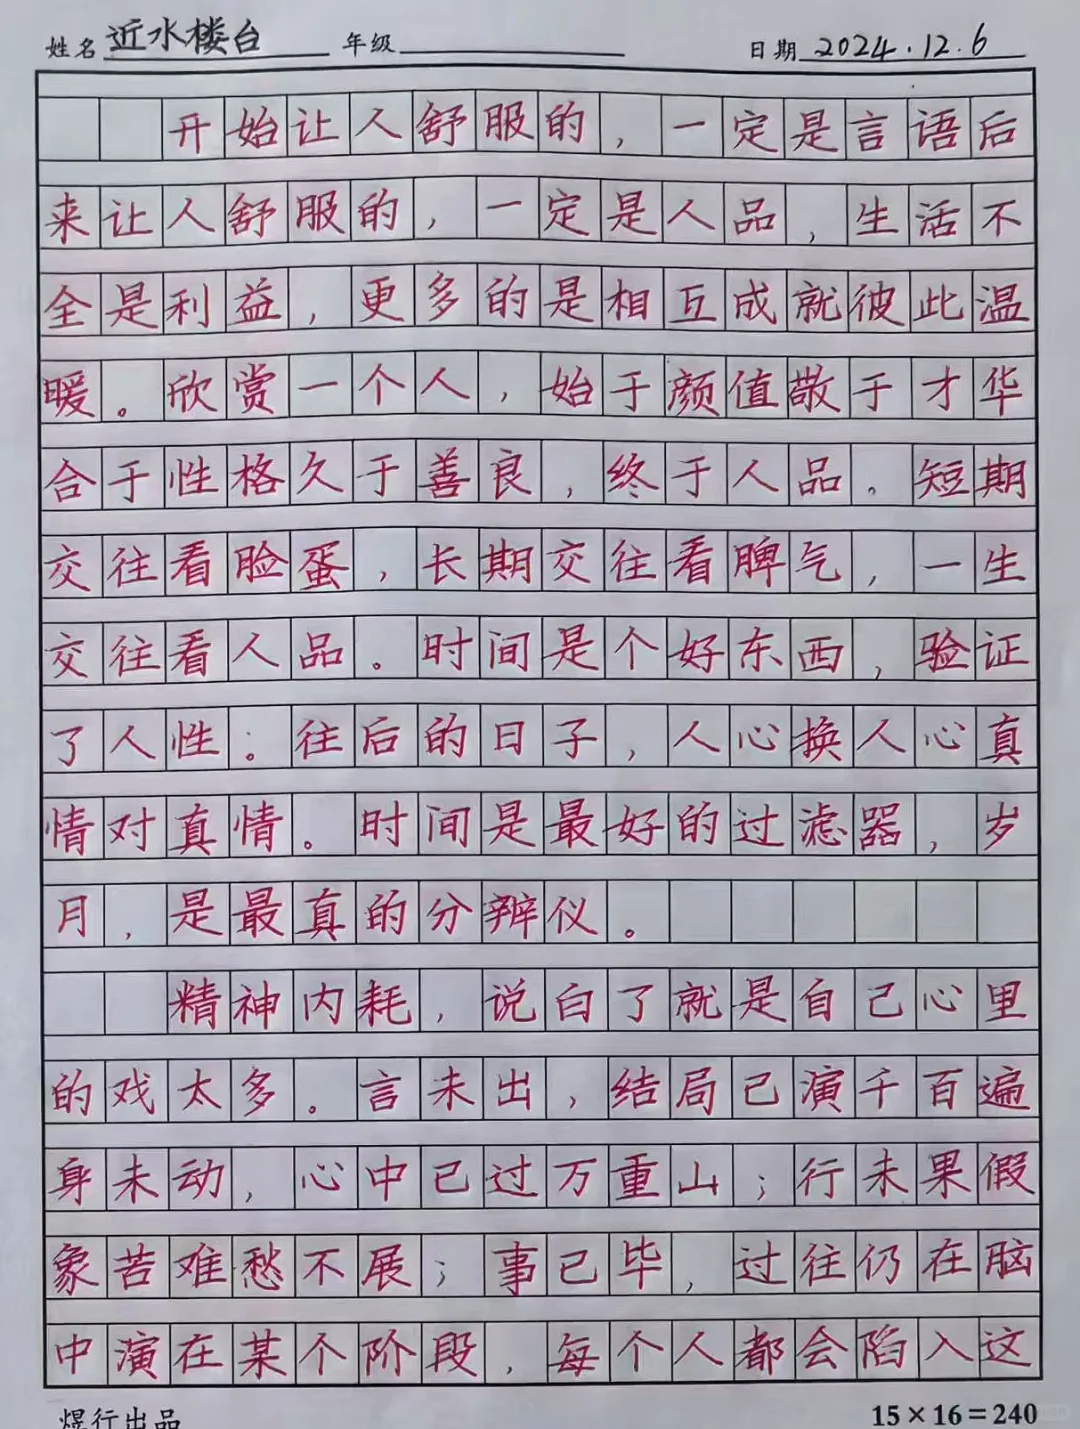 姓名 近水楼台 年级 日期 2024.12.6
开始让人舒服的，一定是言语后
来让人舒服的，一定是人品，生活不
全是利益，更多的是相互成就彼此温
暖。欣赏一个人，始于颜值敬于才华
合于性格久于善良，终于人品。短期
交往看脸蛋，长期交往看脾气，一生
交往看人品。时间是个好东西，验证
了人性。往后的日子，人心换人心真
情对真情。时间是最好的过滤器，岁
月，是最真的分辨仪。
精神内耗，说白了就是自己心里
的戏太多。言未出，结局已演千百遍
身未动，心中已过万重山；行未果假
象苦难愁不展；事已毕，过往仍在脑
中演在某个阶段，每个人都会陷入这
煜行出品 15×16=240